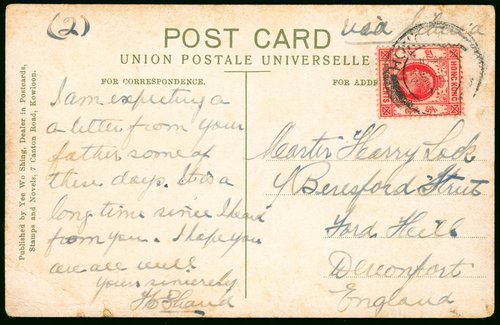 (2)
via Siberia
POST CARD
UNION POSTALE UNIVERSELLE
FOR CORRESPONDENCE.
FOR ADD
HONG KONG
Published by Yee Wo Shing, Dealer in Postcards,
Stamps and Novels, 7 Canton Road, Kowloon.
I am expecting a
a letter from your
father some of
these days. It is a
long time since I heard
from you. I hope you
are all well.
Yours sincerely
Master Harry Lock
Beresford Street
Ford Hill
Devonport
England